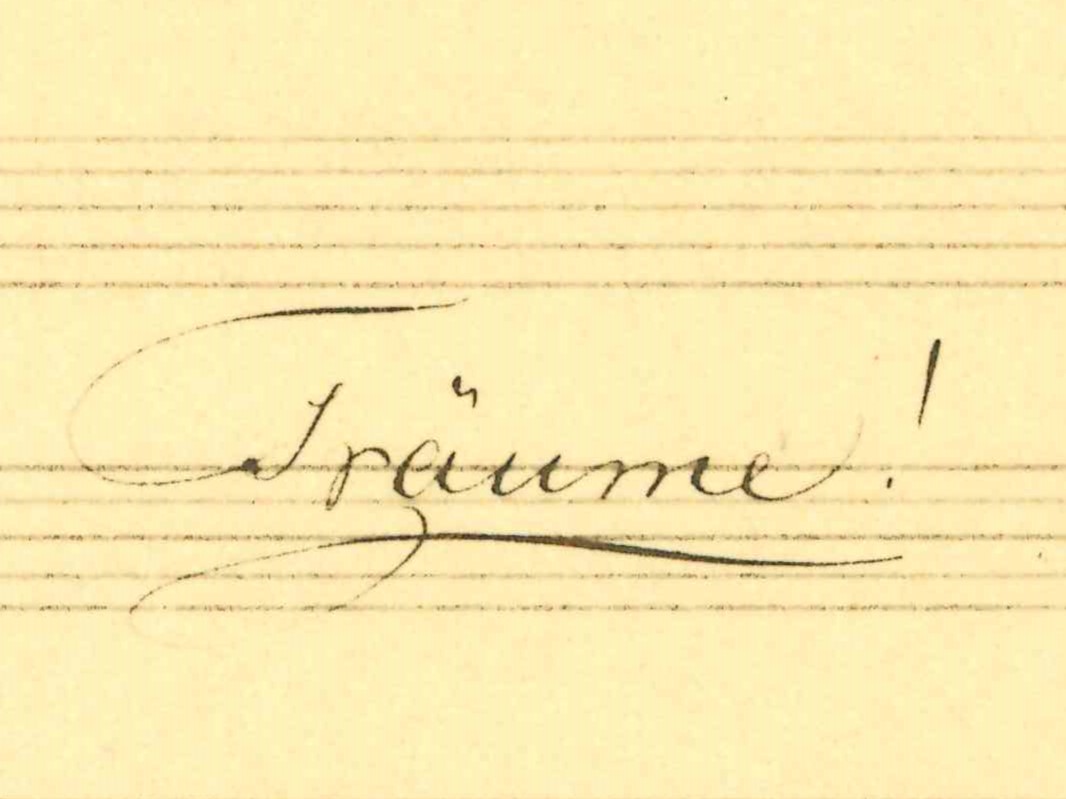 Träume!